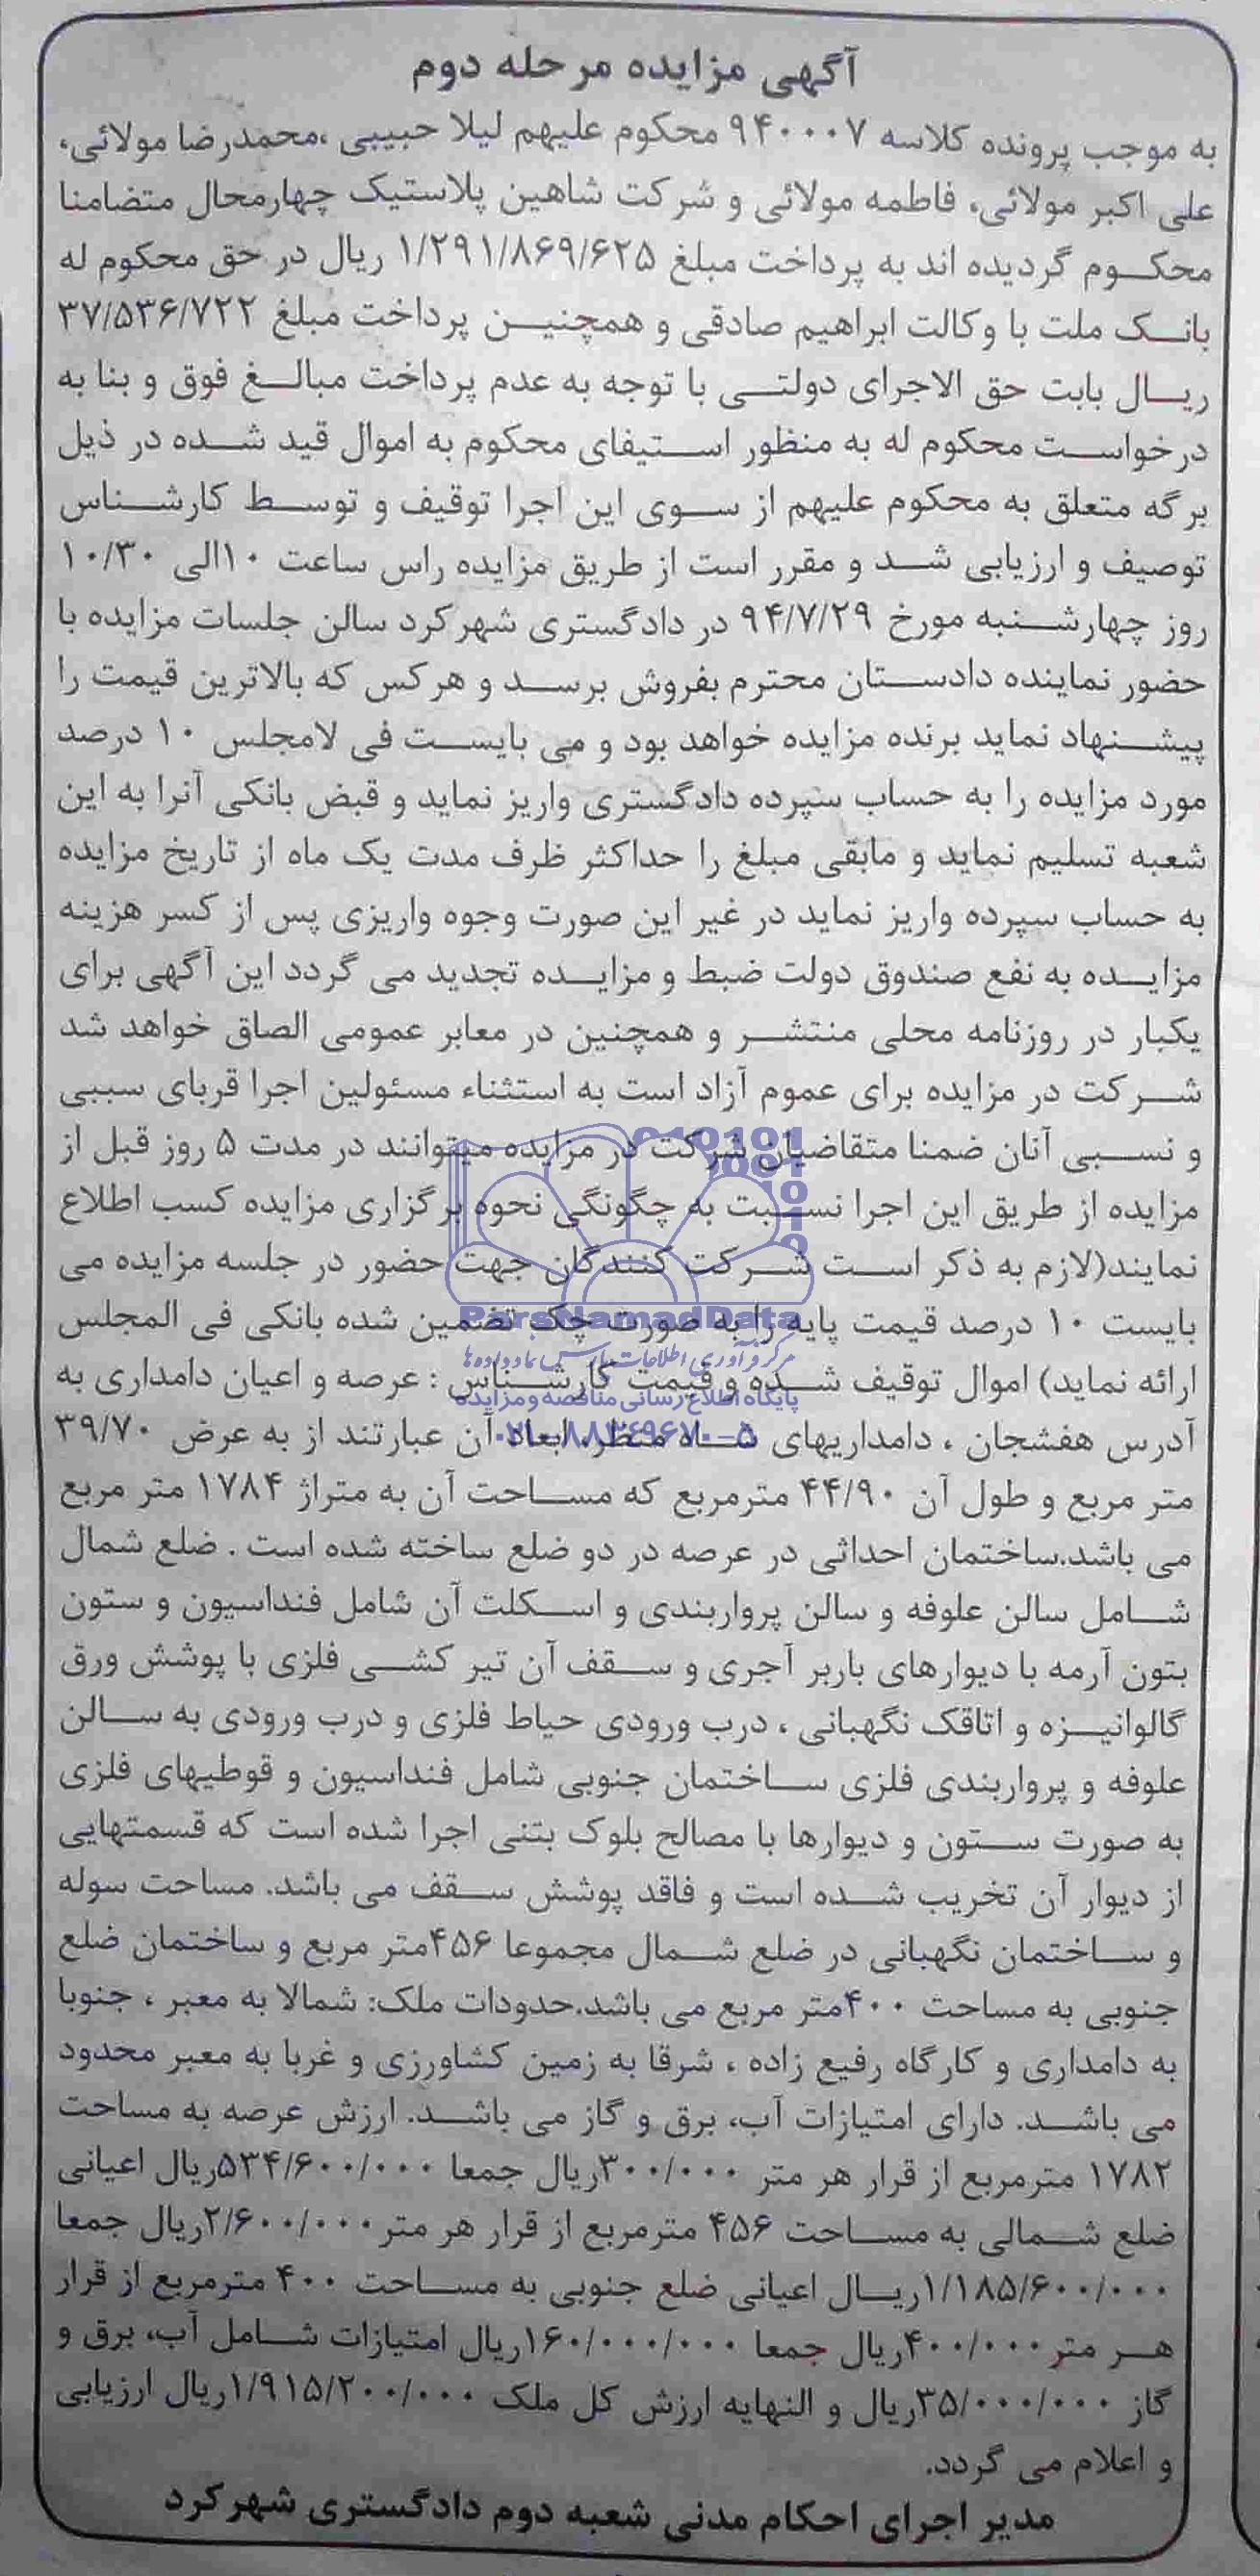 آگهی مزایده مرحله دوم
به موجب پرونده کلاسه ۹۴۰۰۰۷ محکوم علیهم لیلا حبیبی ،محمدرضا مولائی،
علی اکبر مولائی، فاطمه مولائی و شرکت شاهین پلاستیک چهارمحال متضامنا
محکوم گردیده اند به پرداخت مبلغ ۱/۲۹۱/۸۶۹/۶۲۵ ریال در حق محکوم له
بانک ملت با وکالت ابراهیم صادقی و همچنین پرداخت مبلغ ۳۷/۵۳۶/۷۲۲
ریال بابت حق الاجرای دولتی با توجه به عدم پرداخت مبالغ فوق و بنا به
درخواست محکوم له به منظور استیفای محکوم به اموال قید شده در ذیل
برگه متعلق به محکوم علیهم از سوی این اجرا توقیف و توسط کارشناس
توصیف و ارزیابی شد و مقرر است از طریق مزایده راس ساعت ۱۰الی ۱۰/۳۰
روز چهارشنبه مورخ ۹۴/۷/۲۹ در دادگستری شهرکرد سالن جلسات مزایده با
حضور نماینده دادستان محترم بفروش برسد و هرکس که بالاترین قیمت را
پیشنهاد نماید برنده مزایده خواهد بود و می بایست فی لامجلس ۱۰ درصد
مورد مزایده را به حساب سپرده دادگستری واریز نماید و قبض بانکی آنرا به این
شعبه تسلیم نماید و مابقی مبلغ را حداکثر ظرف مدت یک ماه از تاریخ مزایده
به حساب سپرده واریز نماید در غیر این صورت وجوه واریزی پس از کسر هزینه
مزایده به نفع صندوق دولت ضبط و مزایده تجدید می گردد این آگهی برای
یکبار در روزنامه محلی منتشر و همچنین در معابر عمومی الصاق خواهد شد
شرکت در مزایده برای عموم آزاد است به استثناء مسئولین اجرا قربای سببی
و نسبی آنان ضمنا متقاضیان شرکت در مزایده میتوانند در مدت ۵ روز قبل از
مزایده از طریق این اجرا نسبت به چگونگی نحوه برگزاری مزایده کسب اطلاع
نمایند(لازم به ذکر است شرکت کنندگان جهت حضور در جلسه مزایده می
بایست ۱۰ درصد قیمت پایه را به صورت چک تضمین شده بانکی فی المجلس
ارائه نماید) اموال توقیف شده و قیمت کارشناس : عرصه و اعیان دامداری به
آدرس هفشجان ، دامداریهای شاه منظر، ابعاد آن عبارتند از به عرض ۳۹/۷۰
متر مربع و طول آن ۴۴/۹۰ مترمربع که مساحت آن به متراژ ۱۷۸۴ متر مربع
می باشد.ساختمان احداثی در عرصه در دو ضلع ساخته شده است . ضلع شمال
شامل سالن علوفه و سالن پرواربندی و اسکلت آن شامل فنداسیون و ستون
بتون آرمه با دیوارهای باربر آجری و سقف آن تیر کشی فلزی با پوشش ورق
گالوانیزه و اتاقک نگهبانی ، درب ورودی حیاط فلزی و درب ورودی به سالن
علوفه و پرواربندی فلزی ساختمان جنوبی شامل فنداسیون و قوطیهای فلزی
به صورت ستون و دیوارها با مصالح بلوک بتنی اجرا شده است که قسمتهایی
از دیوار آن تخریب شده است و فاقد پوشش سقف می باشد. مساحت سوله
و ساختمان نگهبانی در ضلع شمال مجموعا ۴۵۶متر مربع و ساختمان ضلع
جنوبی به مساحت ۴۰۰متر مربع می باشد.حدودات ملک: شمالا به معبر ، جنوبا
به دامداری و کارگاه رفیع زاده ، شرقا به زمین کشاورزی و غربا به معبر محدود
می باشد. دارای امتیازات آب، برق و گاز می باشد. ارزش عرصه به مساحت
۱۷۸۲ مترمربع از قرار هر متر ۳۰۰/۰۰۰ریال جمعا ۵۳۴/۶۰۰/۰۰۰ریال اعیانی
ضلع شمالی به مساحت ۴۵۶ مترمربع از قرار هر متر۲/۶۰۰/۰۰۰ریال جمعا
۱/۱۸۵/۶۰۰/۰۰۰ریال اعیانی ضلع جنوبی به مساحت ۴۰۰ مترمربع از قرار
هر متر۴۰۰/۰۰۰ریال جمعا ۱۶۰/۰۰۰/۰۰۰ریال امتیازات شامل آب، برق و
گاز ۳۵/۰۰۰/۰۰۰ریال و النهایه ارزش کل ملک ۱/۹۱۵/۲۰۰/۰۰۰ریال ارزیابی
و اعلام می گردد.
مدیر اجرای احکام مدنی شعبه دوم دادگستری شهرکرد
ParsNamadData
مرکز فرآوری اطلاعات پارس نماد داده ها
پایگاه اطلاع رسانی مناقصه و مزایده
۰۲۱-۸۸۳۴۹۶۷۰-۵